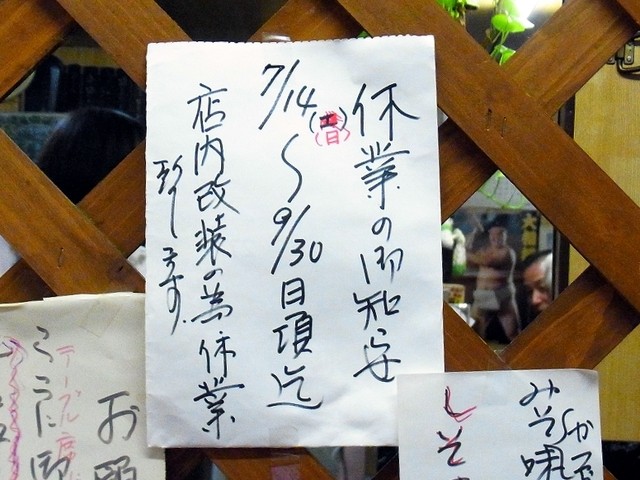 休業の御知安
7/14(日)〜9/30日頃迄
店内改装の為休業
致します。
みそ
しそ
お
テーブル席
大